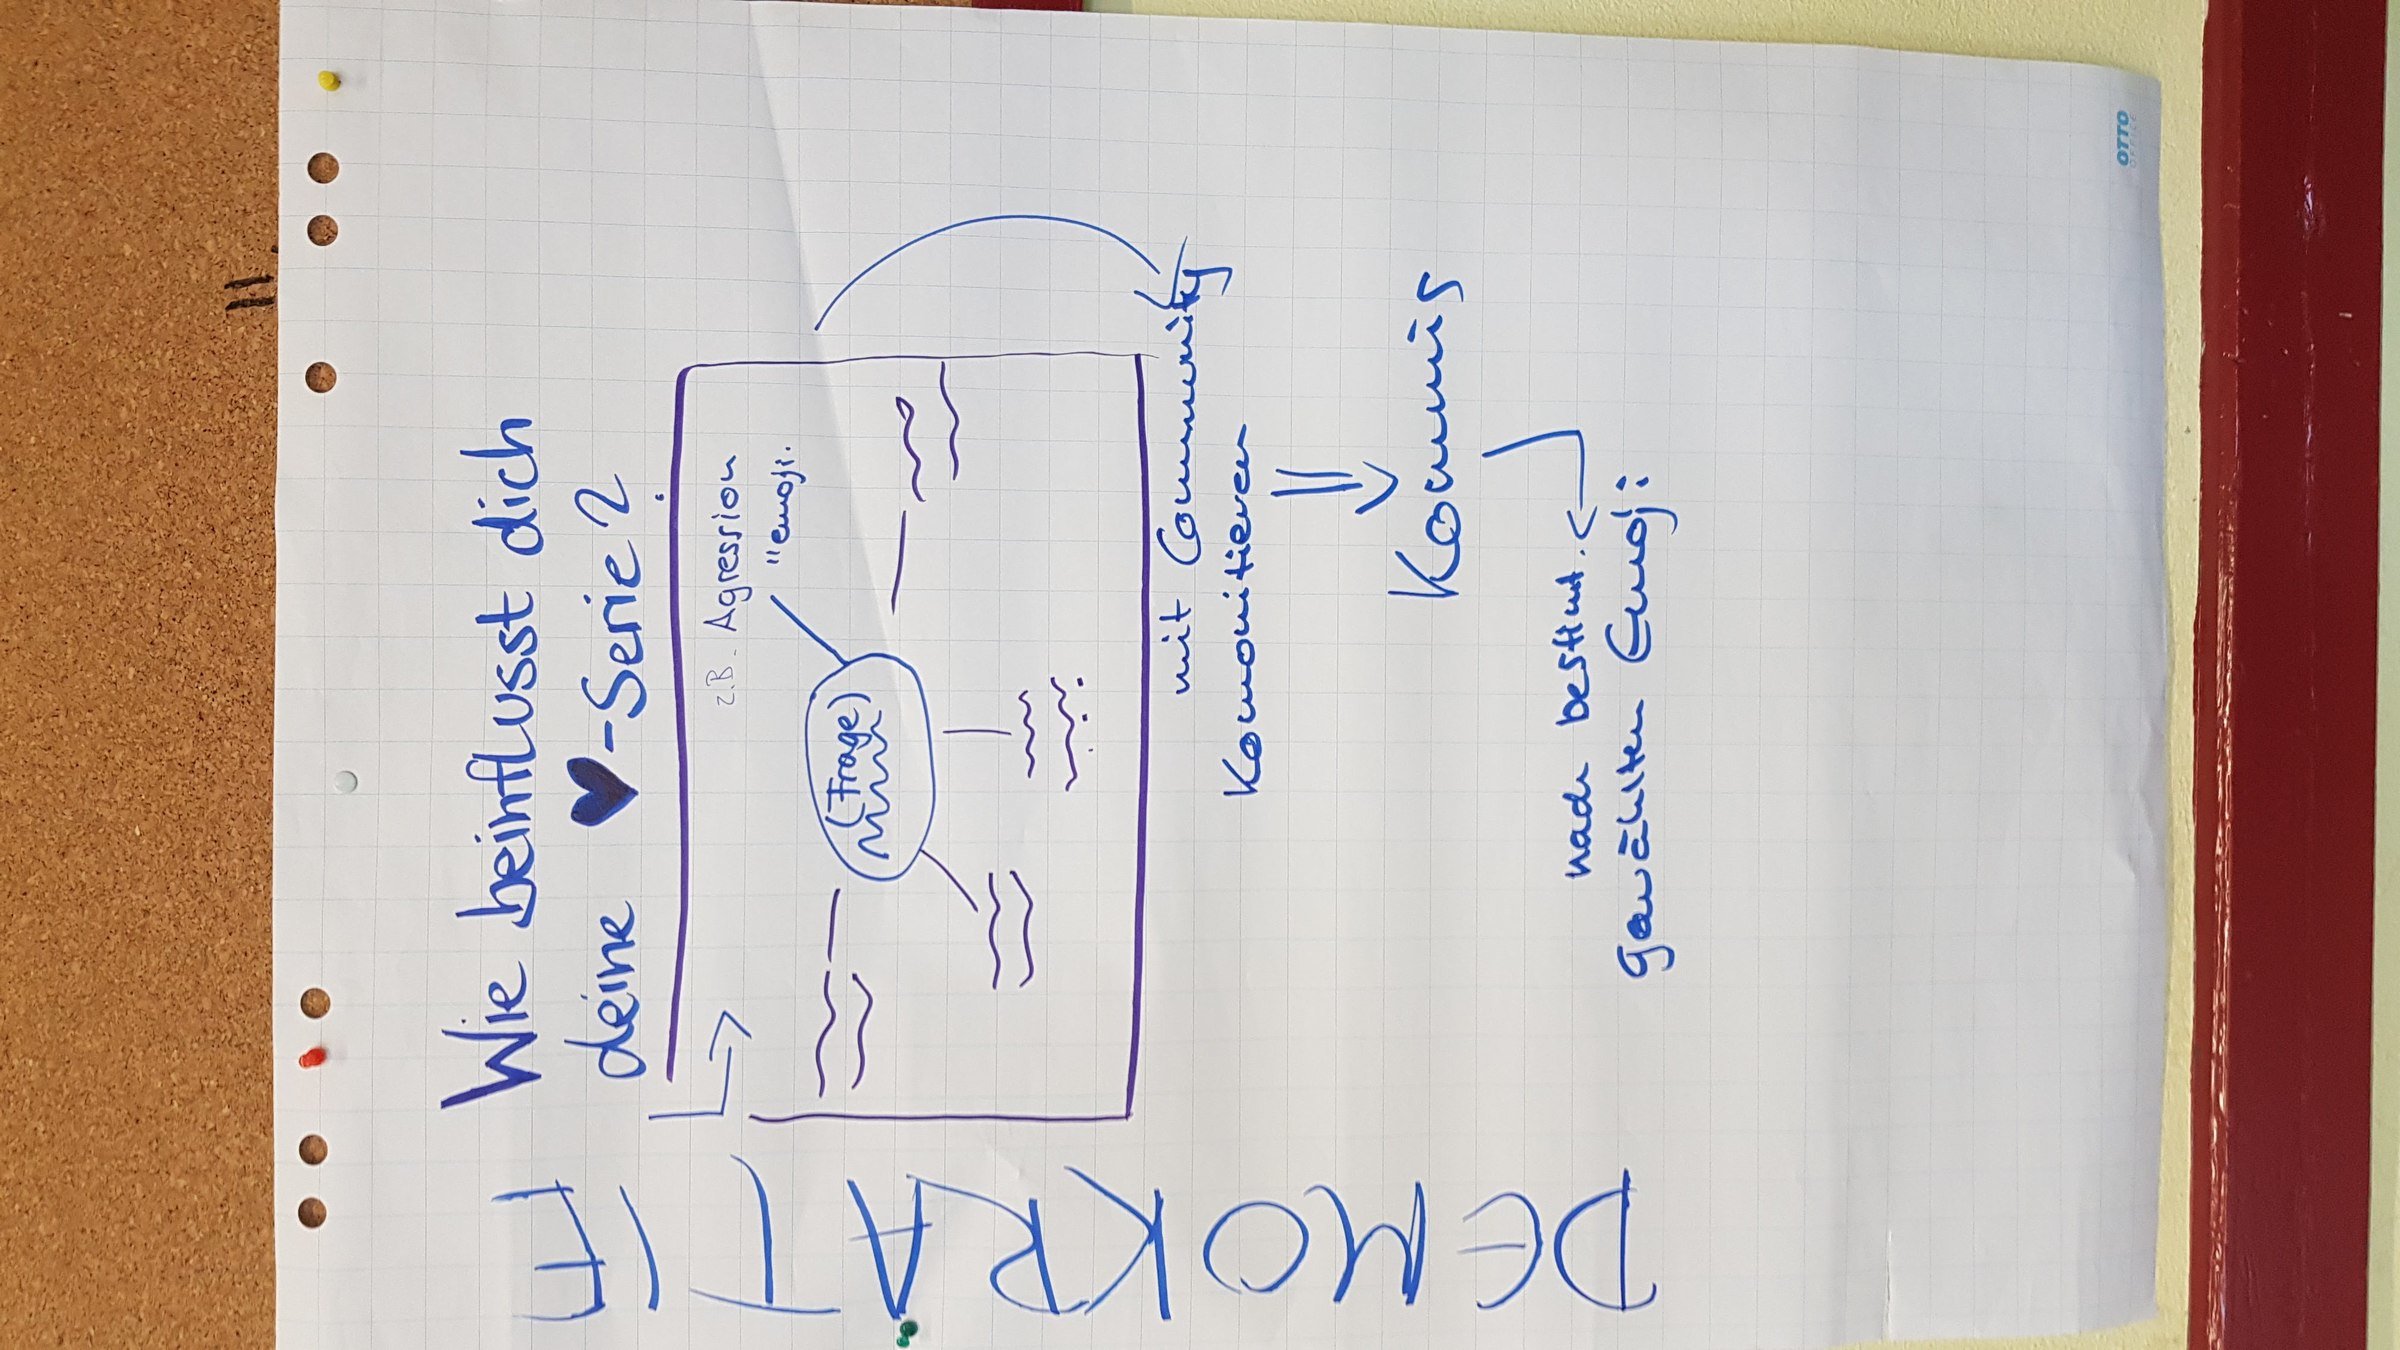 Wie beinflusst dich
deine ♥-Serie?
z.B. Agression
"emoji.
(Frage)
mit Community
Komonitieren
Kommis
nach bestimt.
gewählten Emoji
DEMOKRATIE
OTTO
OFFICE